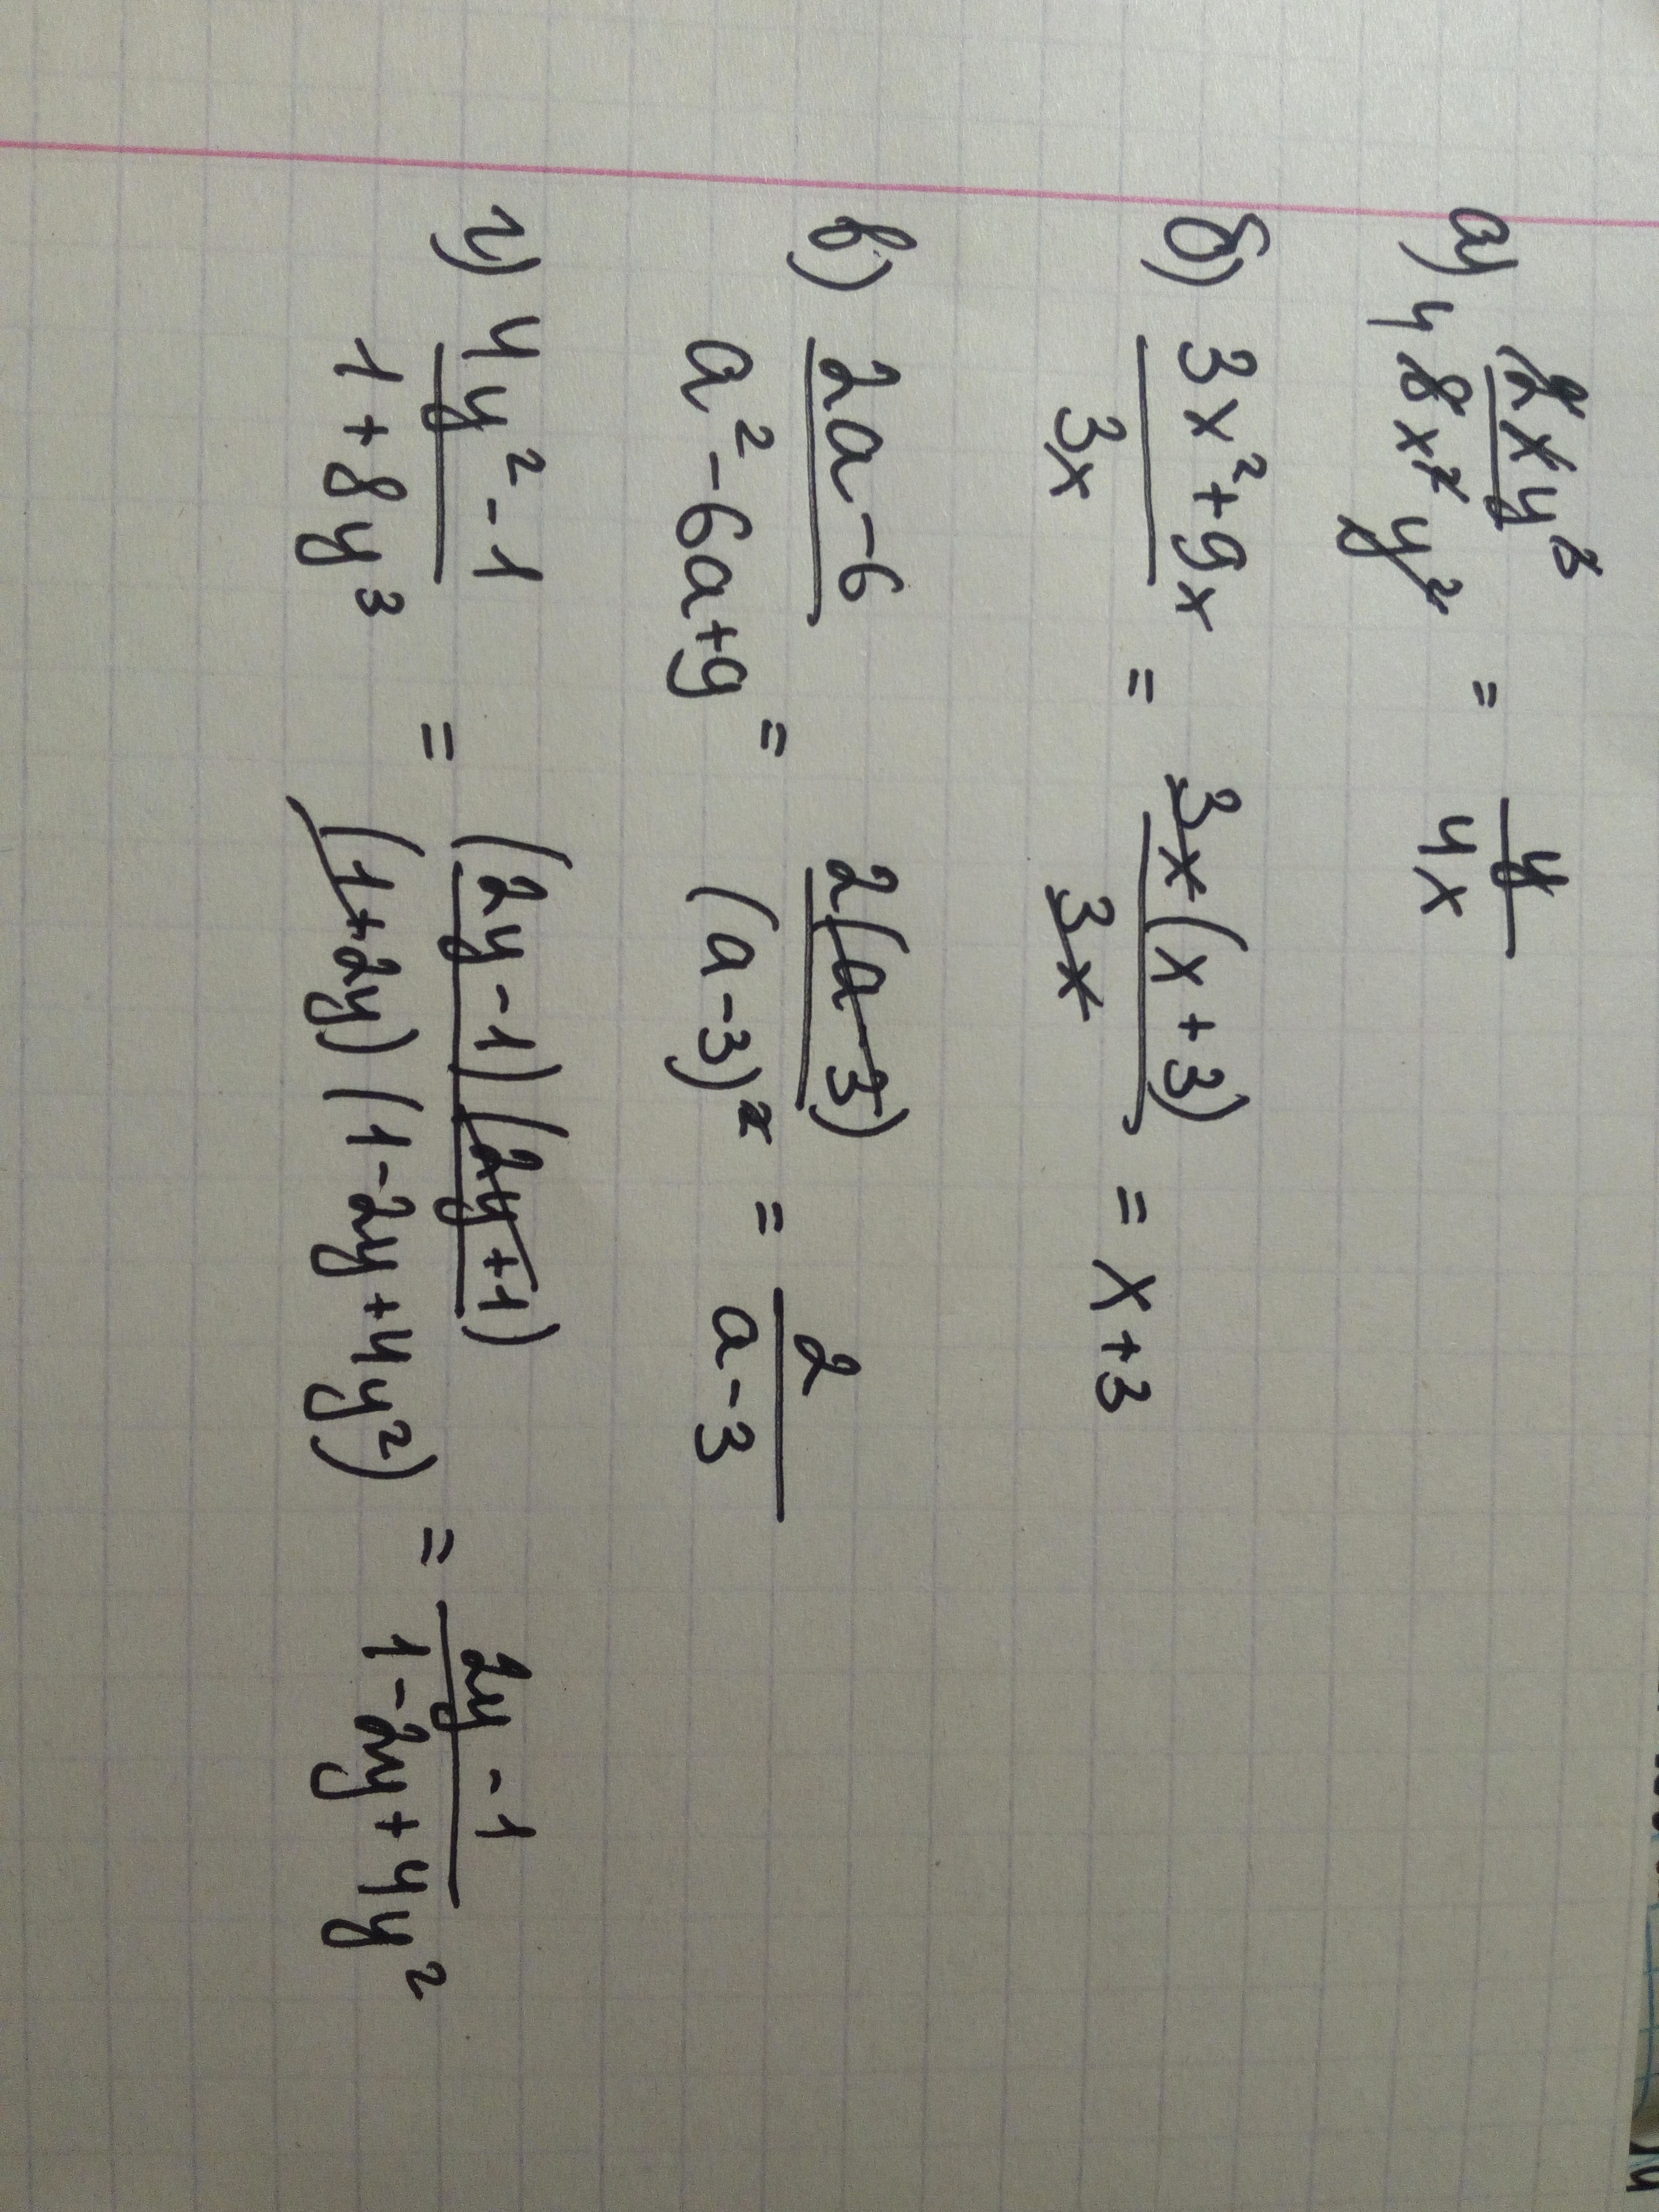 а) 2xy³/8x²y² = y/4x
б) 3x²+9x/3x = 3x(x+3)/3x = x+3
в) 2a-6/a²-6a+9 = 2(a-3)/(a-3)² = 2/a-3
г) 4y²-1/1+8y³ = (2y-1)(2y+1)/(1+2y)(1-2y+4y²) = 2y-1/1-2y+4y²